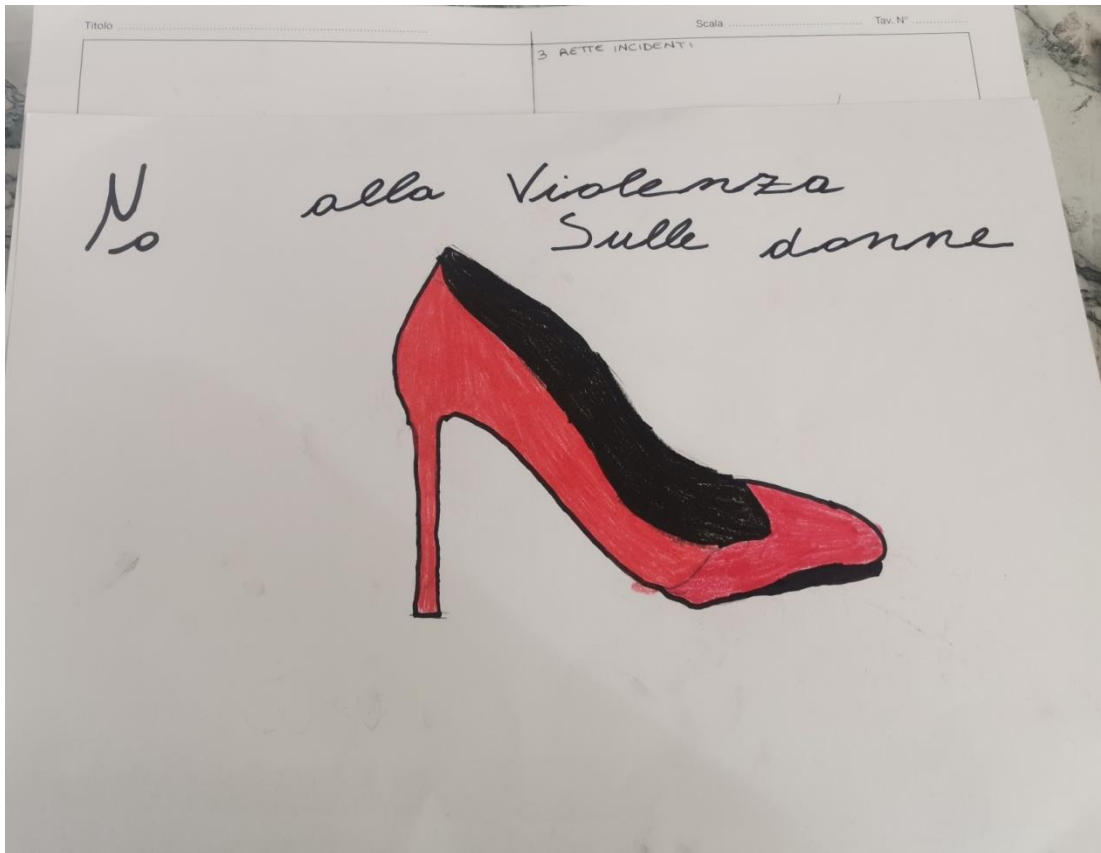 Titolo ........ Scala ........ Tav. N° ........
3 RETTE INCIDENTI
No alla Violenza
Sulle donne